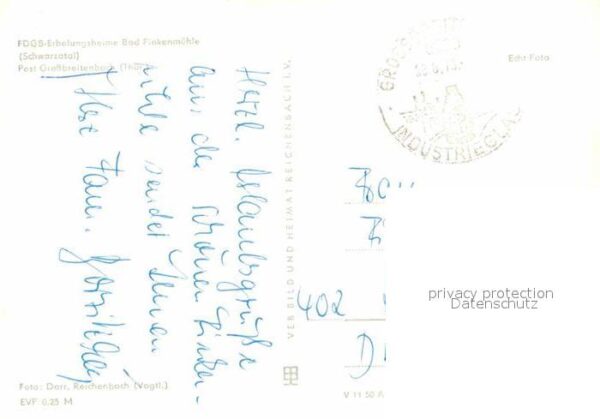 FDGB-Erholungsheime Bad Finkenmühle
(Schwarzatal)
Post Großbreitenbach (Thür.)
Herzl. Urlaubsgrüße
aus der schönen Finken-
mühle sendet Ihnen
Ihre Fam.
VEB BILD UND HEIMAT REICHENBACH I. V.
Echt Foto
GROSSBREIT
INDUSTRIEGLAS
402
D
privacy protection
Datenschutz
Foto: Darr, Reichenbach (Vogtl.)
EVP 0,25 M
V 11 50 A